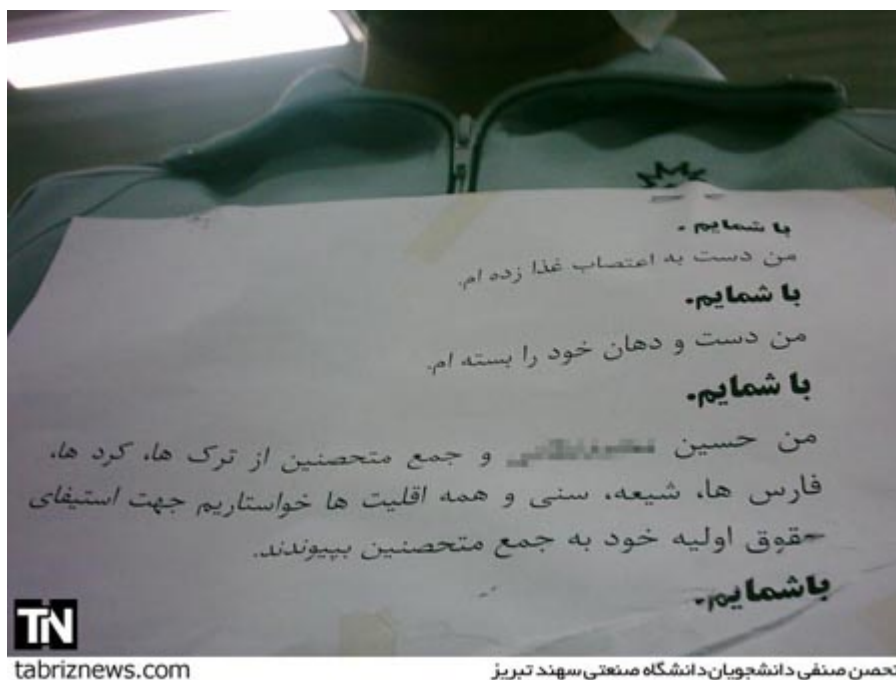 با شمایم.
من دست به اعتصاب غذا زده ام.
با شمایم.
من دست و دهان خود را بسته ام.
با شمایم.
من حسین و جمع متحصنین از ترک ها، کرد ها،
فارس ها، شیعه، سنی و همه اقلیت ها خواستاریم جهت استیفای
حقوق اولیه خود به جمع متحصنین بپیوندند.
باشمایم.
TN
tabriznews.com
تحصن صنفی دانشجویان دانشگاه صنعتی سهند تبریز